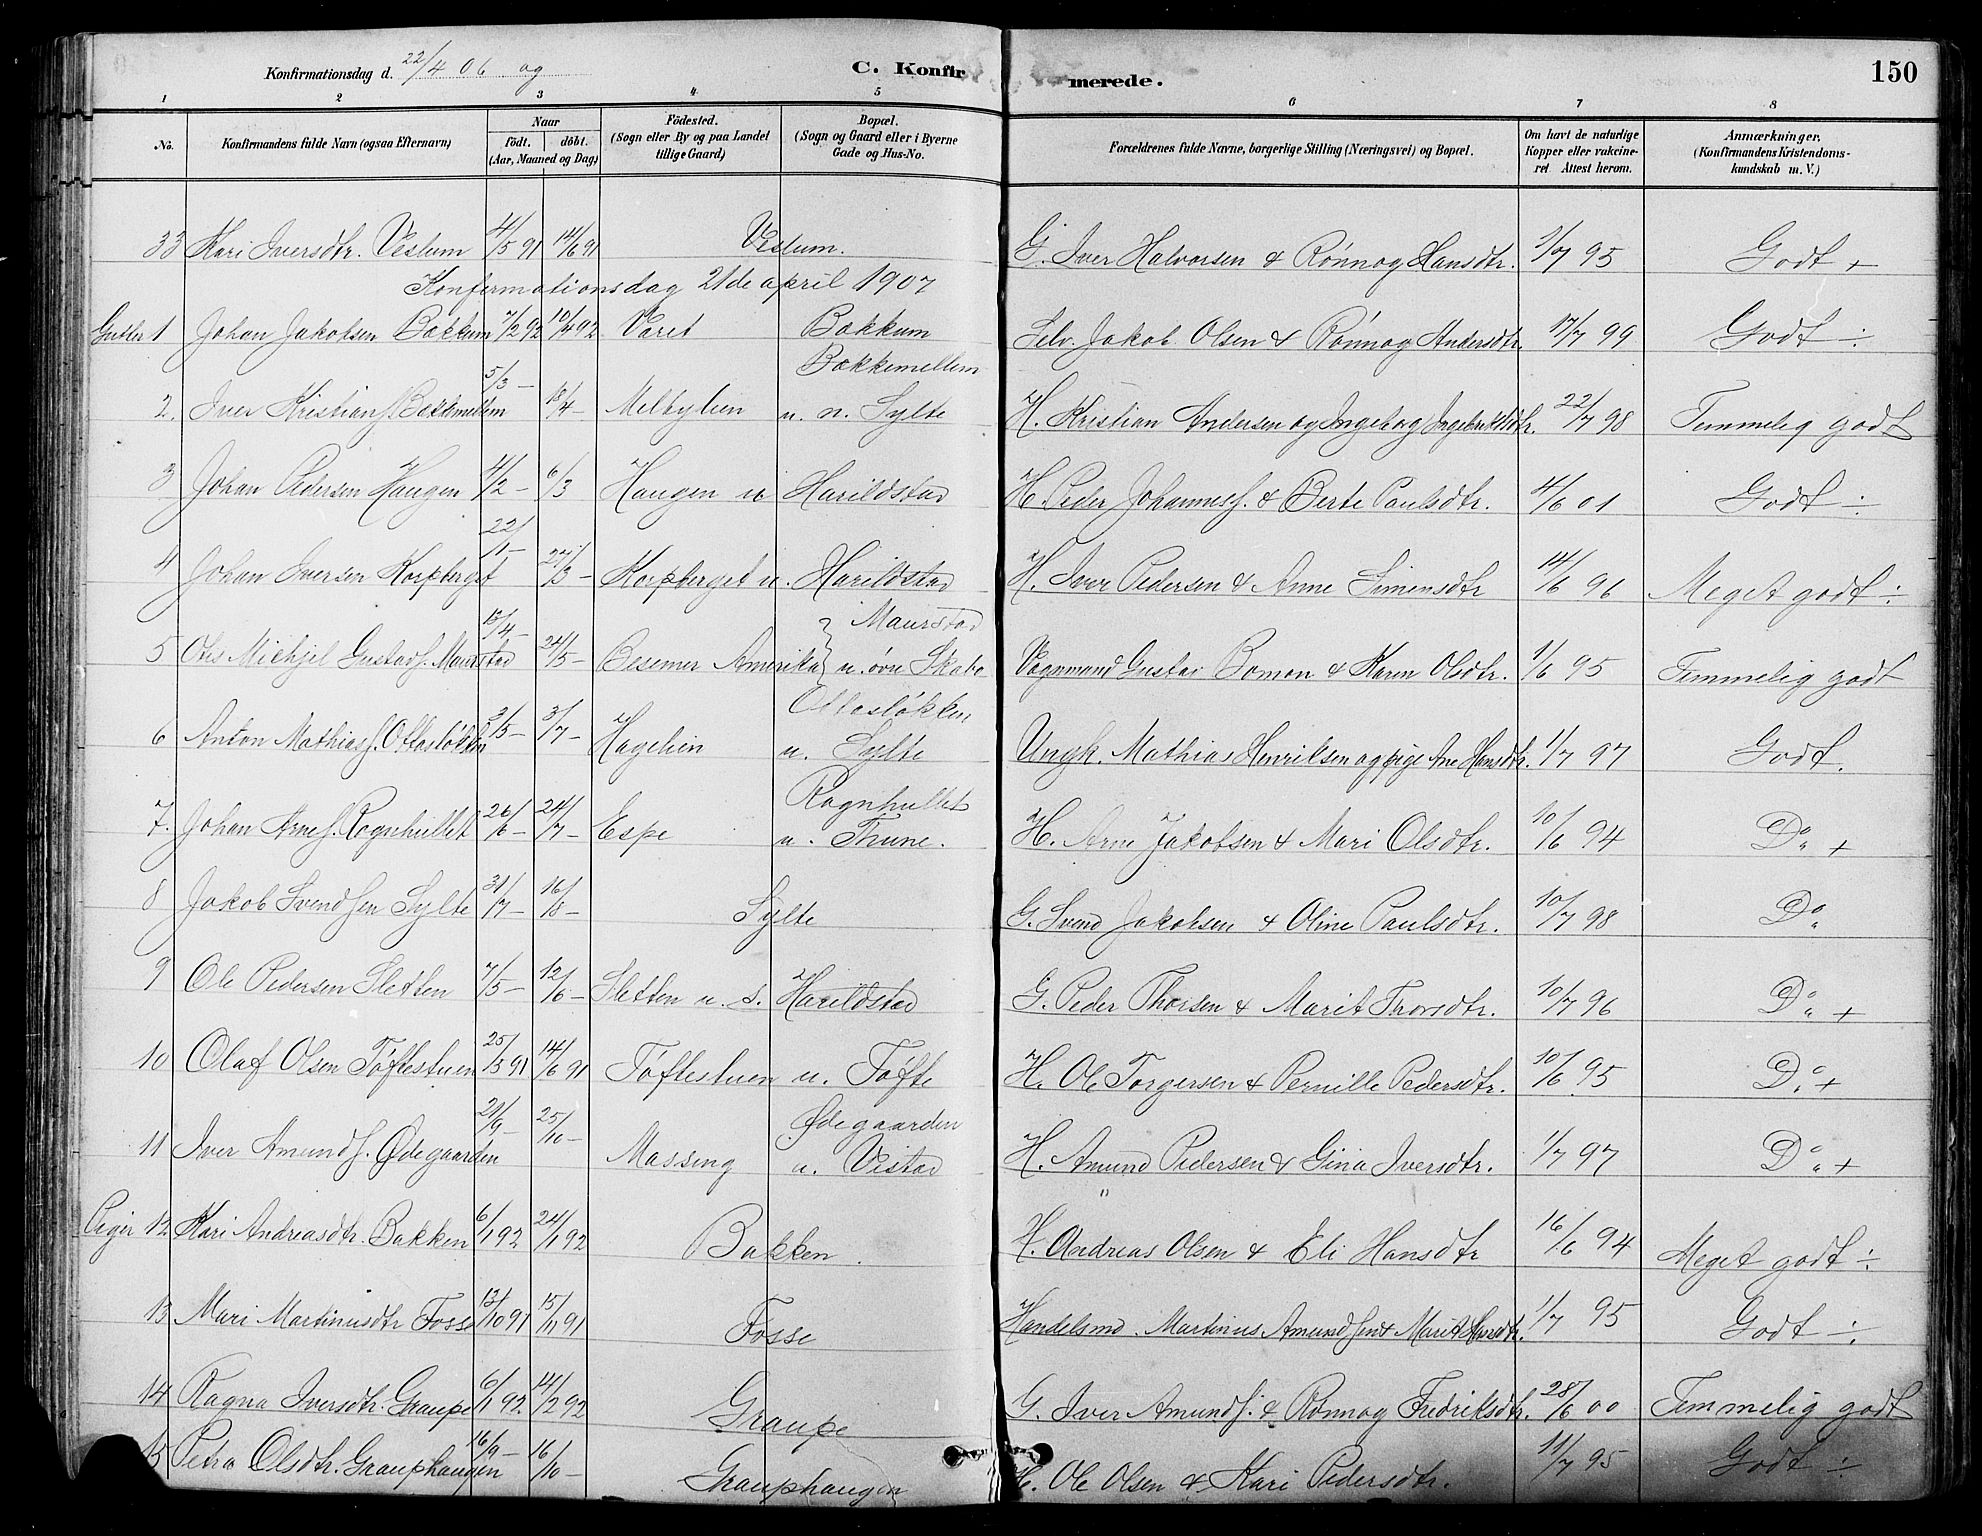 Konfirmationsdag d. 22/4 06 og
C. Konfirmerede.
150
1 2 3 4 5 6 7 8
No. Konfirmandens fulde Navn (ogsaa Efternavn) Naar födt. döbt. (Aar, Maaned og Dag) Födested. (Sogn eller By og paa Landet tillige Gaard) Bopæl. (Sogn og Gaard eller i Byerne Gade og Hus-No. Forældrenes fulde Navne, borgerlige Stilling (Næringsvei) og Bopæl. Om havt de naturlige Kopper eller vakcineret. Attest herom. Anmærkninger. (Konfirmandens Kristendomskundskab m. V.)
33 Kari Iversdtr. Veslum 4/5 91 14/6 91 Veslum. G. Iver Halvorsen & Rønnog Hansdtr. 1/7 95 Godt +
Konfirmationsdag 21de april 1907
Gutter 1 Johan Jakobsen Bakkum 7/2 92 10/4 92 Varet Bakkum Selv. Jakob Olsen & Rønnog Andersdtr. 17/7 99 Godt ÷
2. Iver Kristians. Bakkemellem 5/3 – 18/4 – Melbylien Bakkemellem u. n. Sylte H. Kristian Andersen og Ingeborg Ingebrektsdtr. 22/7 98 Temmelig godt
3 Johan Pedersen Haugen 4/2 – 6/3 Haugen u Harildstad H. Peder Johanness. & Berte Paulsdtr. 4/6 01 Godt ÷
4 Johan Iversen Korpberget 22/1 – 27/3 – Korpberget u. Harildstad H. Iver Pedersen & Anne Simensdtr 14/6 96 Meget godt ÷
5 Otis Michjel Gustads. Maurstad 13/4 – 24/5 – Besemer Amerika Maurstad u. øvre Skabo Vognmand Gustav Boman & Karen Olsdtr. 1/6 95 Temmelig godt
6 Anton Mathias. Ottosløkken 3/5 – 3/7 – Hagelien Ottosløkken u. Sylte Ungk. Mathias Henriksen og pige Ane Hansdtr. 1/7 97 Godt.
7. Johan Arnes. Rognhullet 26/6 – 24/7 – Espe Rognhullet u. Thune. H. Arne Jakobsen & Mari Olsdtr. 10/6 94 Do +
8 Jakob Svendsen Sylte 31/7 – 16/8 – Sylte G. Svend Jakobsen & Oline Paulsdtr. 10/7 98 Do
9 Ole Pedersen Sletten 7/5 – 12/6 – Sletten u. s. Harildstad G. Peder Thorsen & Marit Thorsdtr. 10/7 96 Do +
10 Olaf Olsen Tøftestuen 25/5 91 14/6 91 Tøftestuen u. Tøfte H. Ole Torgersen & Pernille Pedersdtr. 10/6 95 Do +
11 Iver Amunds. Ødegaarden 21/9 – 25/10 – Massing Ødegaarden u. Vistad H. Amund Pedersen & Gina Iversdtr. 1/7 97 Do +
Piger 12 Kari Andreasdtr. Bakken 6/1 92 24/1 92 Bakken. H. Andreas Olsen & Eli Hansdtr 16/6 94 Meget godt ÷
13 Mari Martinusdtr Fosse 13/10 91 15/11 91 Fosse Handelsmd. Martinus Amundsen & Marit Hansdtr. 1/7 95 Godt ÷
14 Ragna Iversdtr. Graupe 6/1 92 14/2 92 Graupe G. Iver Amunds. & Rønnog Fredriksdtr. 28/6 00 Temmelig godt
15 Petra Olsdtr. Grauphaugen 16/9 – 16/10 – Grauphaugen H. Ole Olsen & Kari Pedersdtr. 11/7 95 Godt ÷